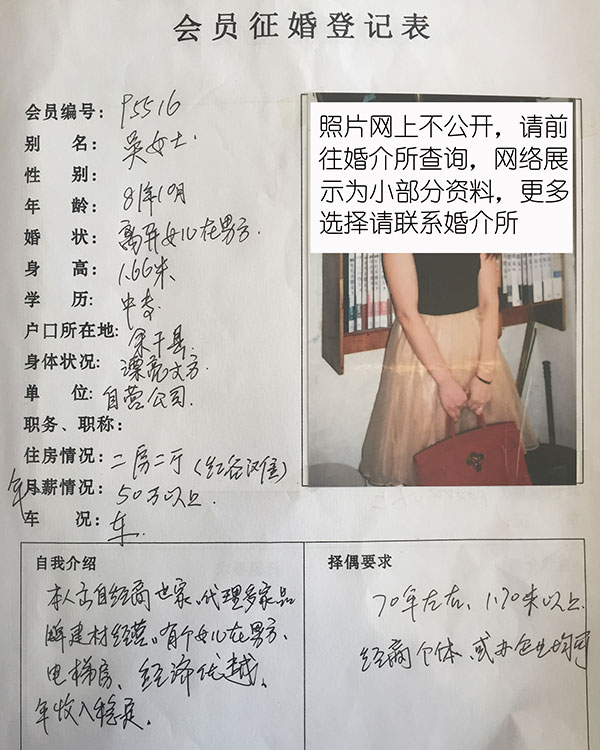 会员征婚登记表
会员编号: P5516
别名: 吴女士.
性别:
年龄: 81年10月
婚状: 离异女儿在男方.
身高: 1.66米
学历: 中专
户口所在地: 余干县.
身体状况: 漂亮大方.
单位: 自营公司.
职务、职称:
住房情况: 二房二厅(红谷滩住)
年月薪情况: 50万以上.
车况: 车.
照片网上不公开，请前
往婚介所查询，网络展
示为小部分资料，更多
选择请联系婚介所
自我介绍
本人出自经商世家、代理多家品
牌建材经营.有个女儿在男方、
电梯房、经济优越、
年收入稳定.
择偶要求
70年左右、1.70米以上
经商个体、或办企业均可